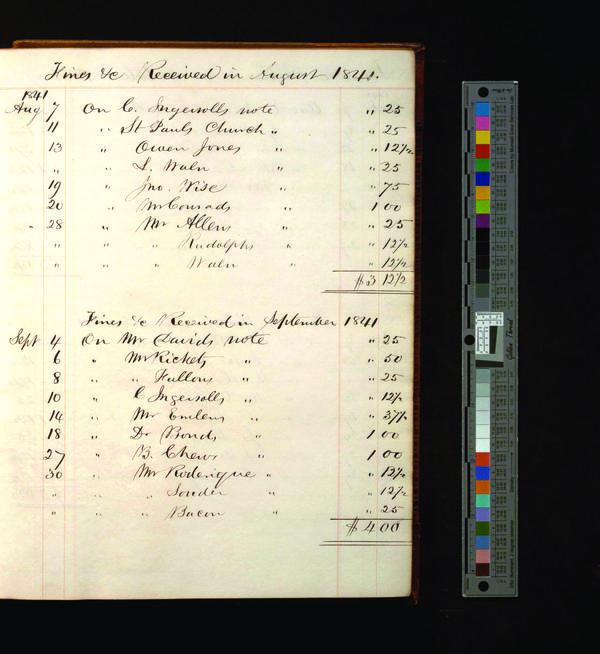 Fines &c Received in August 1841.
1841
Aug 7 On C. Ingersolls note " 25
11 " St Pauls Church " " 25
13 " Owen Jones " " 12½
" " L. Waln " " 25
19 " Jno. Wise " " 75
20 " Mr Conrads " 1 00
" 28 " Mr Allens " " 25
" " " Rudolphs " " 12½
" " " Waln " " 12½
$3 12½
Fines &c Received in September 1841
Sept 4 On Mr Davids note " 25
6 " Mr Rickets " " 50
8 " " Fallons " " 25
10 " C Ingersolls " " 12½
14 " Mr Emlens " " 37½
18 " Dr Bonds " 1 00
27 " B. Chews " 1 00
30 " Mr Roderigue " " 12½
" " " Souder " " 12½
" " " Bacon " " 25
$4 00
Golden Thread